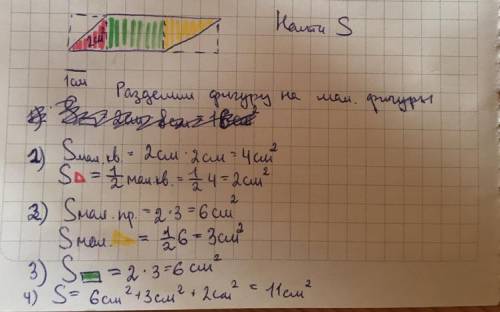 Найти S
2см²
1см
Разделим фигуру на мал. фигуры
1) Sмал.кв. = 2см · 2см = 4см²
S = 1/2 мал.кв. = 1/2 4 = 2см²
2) Sмал. пр. = 2·3 = 6см²
Sмал. = 1/2 6 = 3см²
3) S = 2·3 = 6см²
4) S = 6см² + 3см² + 2см² = 11см²